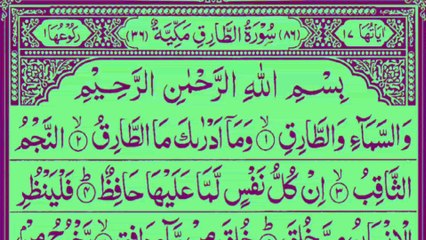 اٰیَاتُهَا ١٤ (٨٦) سُوْرَةُ الطَّارِقِ مَكِّیَّةٌ (٣٦) رُكُوْعُهَا ١
بِسْمِ اللّٰهِ الرَّحْمٰنِ الرَّحِیْمِ
وَالسَّمَآءِ وَالطَّارِقِ ۙ﴿١﴾ وَمَاۤ اَدْرٰىكَ مَا الطَّارِقُ ۙ﴿٢﴾ النَّجْمُ
الثَّاقِبُ ۙ﴿٣﴾ اِنْ كُلُّ نَفْسٍ لَّمَّا عَلَیْهَا حَافِظٌ ؕ﴿٤﴾ فَلْیَنْظُرِ
الْاِنْسَانُ مِمَّ خُلِقَ ؕ خُلِقَ مِنْ مَّآءٍ دَافِقٍ ۙ یَّخْرُجُ مِنْۢ